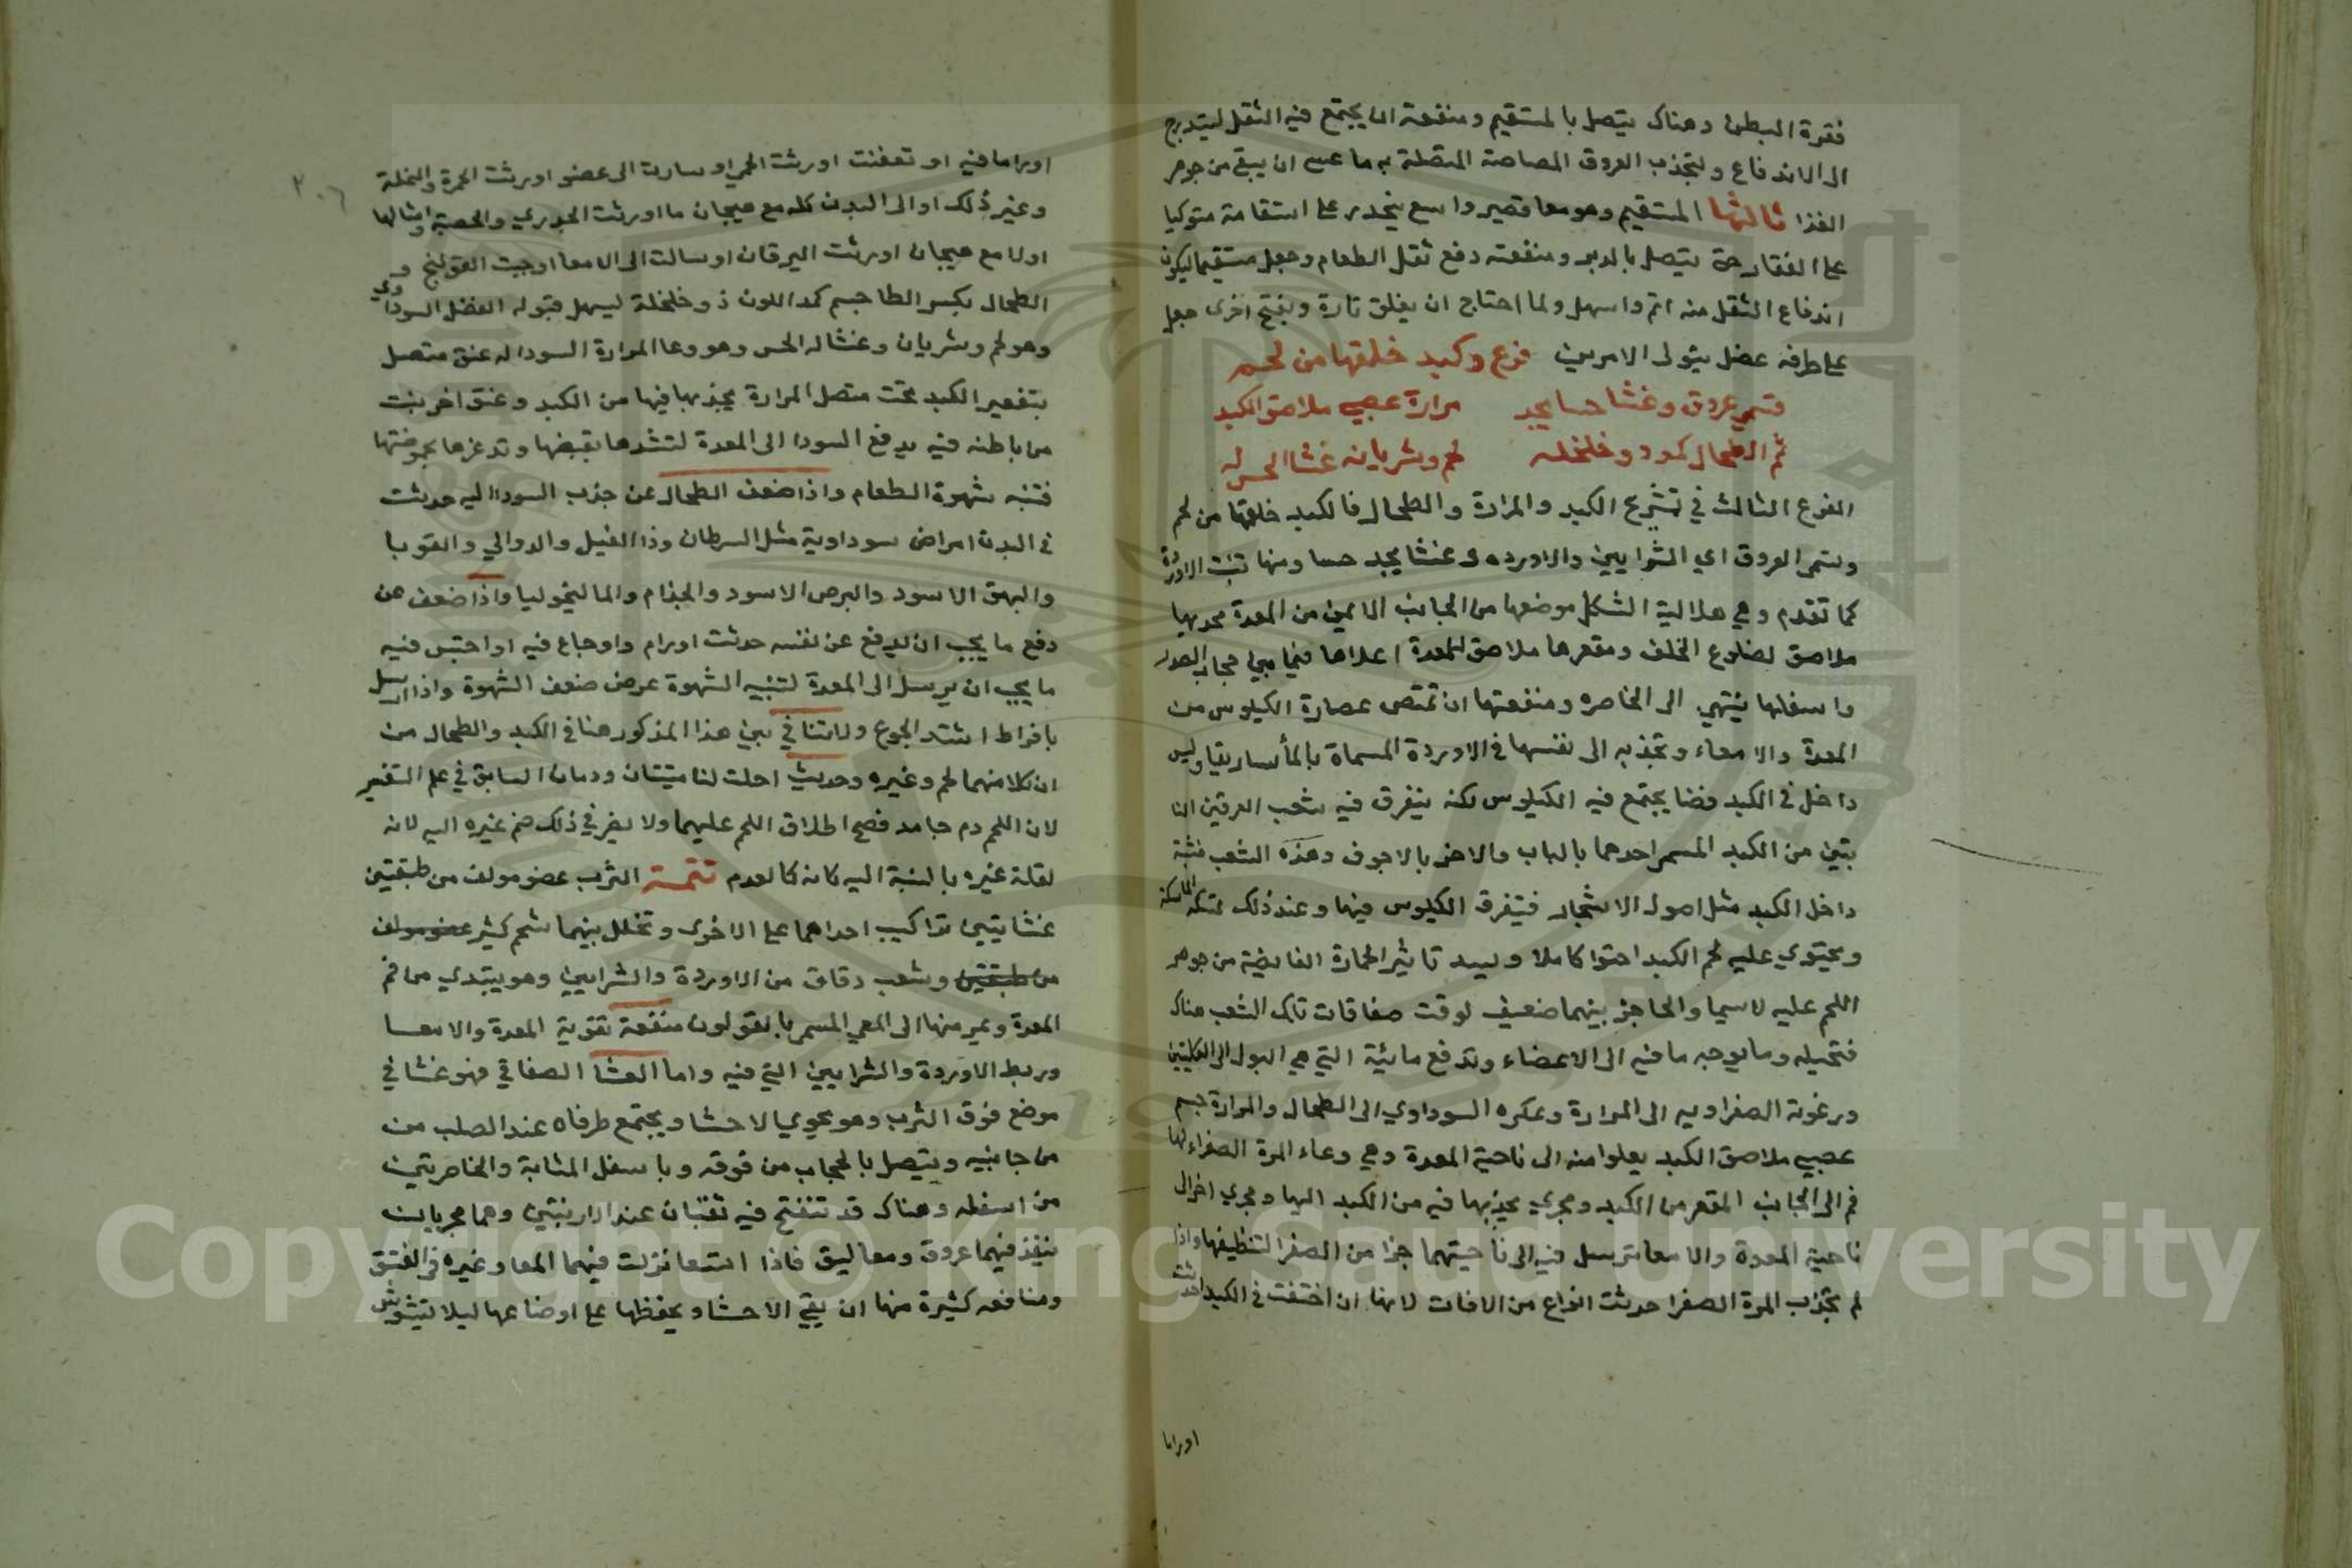 فقرة البطن وهناك يتصل بالمستقيم ومنفعته ان يجتمع فيه الثقل ليتدرج
الى الاندفاع ولتجذب العروق المصاصة المتصلة به ما عسى ان يبقى من جوهر
الغذا ثالثها المستقيم وهو معا قصير واسع ينحدر على استقامة متوكيا
على الفقار حتى يتصل بالدبر ومنفعته دفع ثقل الطعام وجعل مستقيما ليكون
اندفاع الثقل منه اتم واسهل ولما احتاج ان يغلق تارة ويفتح اخرى جعل
على طرفه عضل يتولى الامرين فرع وكبد خلقها من لحم
قسمي عروق وغشا حسا يجد مرارة عصبي ملاصق الكبد
ثم الطحال كمد ذو خلخله لحم وشريانه غشا الحس له
الفرع الثالث في تشريح الكبد والمرارة والطحال فالكبد خلقها من لحم
وقسمي العروق اي الشرايين والاورده وغشا يجد حسا ومنها تنبت الاوردة
كما تقدم وهي هلالية الشكل موضعها من الجانب الايمن من المعدة محدبها
ملاصق لضلوع الخلف ومقعرها ملاصق للمعدة اعلاها فيما يلي حجاب الصدر
واسفلها ينتهي الى الخاصره ومنفعتها ان تمتص عصارة الكيلوس من
المعدة والامعاء وتجذبه الى نفسها في الاوردة المسماة بالماساريقا وليس
داخل في الكبد فضا يجتمع فيه الكيلوس لكنه يتفرق فيه شعب العرقين النا
بتين من الكبد المسمى احدهما بالباب والاخر بالاجوف وهذه الشعب منبثة
داخل الكبد مثل اصول الاشجار فيتفرق الكيلوس فيها وعند ذلك تمسكه الماسكة
ويحتوي عليه لحم الكبد احتوا كاملا ويشد تاثير الحرارة الفايضة من جوهر
اللحم عليه لاسيما والحاجز بينهما ضعيف لرقة صفاقات تلك الشعب هناك
فتحيله وما يوجه ما فيه الى الاعضاء وتدفع مائية التي هي البول الى الكليتين
ورغوته الصفراويه الى المرارة وعكره السوداوي الى الطحال والمرارة جسم
عصبي ملاصق الكبد يعلوا منه الى ناحية المعدة وهي وعاء المرة الصفراء لها
فم الى الجانب المقعر من الكبد ومجري يجذبها فيه من الكبد اليها ومجري اخر الى
ناحية المعدة والامعا ترسل فيه الى ناحيتهما جزا من الصفرا لتنظيفها واذا
لم تجذب المرة الصفرا حدثت انواع من الافات لانها ان اختقنت في الكبد احدثت
اوراما
٢٠٦
اوراما فيه او تعفنت اورثت الحمي او سارت الى عضو اورثت الحمرة والنملة
وغير ذلك او الى البدن كله مع هيجان ما اورثت الجدري والحصبة وامثالها
اولا مع هيجان اورثت اليرقان او سالت الى الامعا اوجبت القولنج و
الطحال بكسر الطا جسم كمد اللون ذو خلخلة ليسهل قبوله الفضل السوداوي
وهو لحم وشريان وغشا له الحس وهو وعا المرارة السودا له عنق متصل
بتقعير الكبد تحت متصل المرارة يجذبها فيها من الكبد وعنق اخر ينبت
من باطنه فيه يدفع السودا الى المعدة لتشدها بقبضها وتدغرها بحموضتها
فتنبه شهوة الطعام واذا ضعف الطحال عن جذب السودا اليه حدثت
في البدن امراض سوداوية مثل السرطان وذا الفيل والدوالي والقوبا
والبهق الاسود والبرص الاسود والجذام والماليخوليا واذا ضعف عن
دفع ما يجب ان يدفع عن نفسه حدثت اورام واوجاع فيه او احتبس فيه
ما يجب ان يرسل الى المعدة لتنبيه الشهوة عرض ضعف الشهوة واذا ارسل
بافراط اشتد الجوع ولا تنافي بين هذا المذكور هنا في الكبد والطحال من
ان كلا منهما لحم وغيره وحديث احلت لنا ميتتان ودمان السابق في علم التفسير
لان اللحم دم جامد فصح اطلاق اللحم عليهما ولا يضر في ذلك ضم غيره اليه لانه
لقلة غيره بالنسبة اليه كانه كالعدم تتمة الثرب عضو مولف من طبقتين
غشايتين تراكيب احداهما على الاخرى وتخلل بينهما شحم كثير عضو مولف
من طبقتين وشعب دقاق من الاوردة والشرايين وهو يبتدي من فم
المعدة ويمر منها الى المعي المسمى بالقولون منفعته تقوية المعدة والامعا
وربط الاوردة والشرايين التي فيه واما الغشا الصفاقي فهو غشا في
موضع فوق الثرب وهو يحوي الاحشا ويجتمع طرفاه عند الصلب من
من جانبيه ويتصل بالحجاب من فوقه وباسفل المثانة والخاصرتين
من اسفله وهناك قد تنفتح فيه ثقبان عند الاربتين وهما مجريان
ينفذ فيهما عروق ومعاليق فاذا اتسعا نزلت فيهما المعا وغيره في الفتق
ومنافعه كثيرة منها ان يقي الاحشا ويحفظها على اوضاعها ليلا تتشوش
Copyright © King Saud University